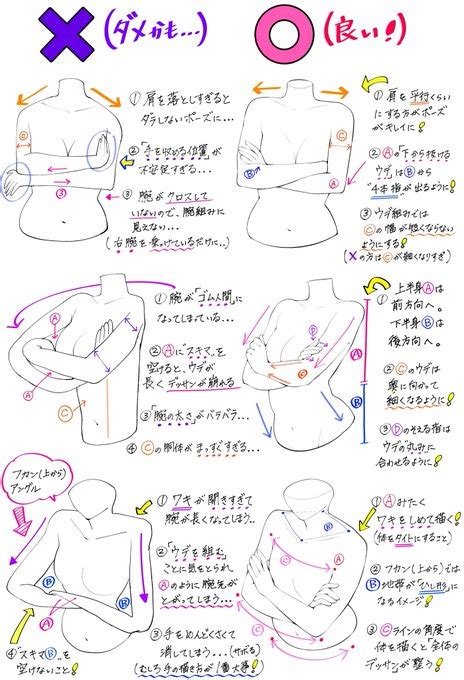 (ダメかも...)
(良い!)
① 肩を落としすぎると
ダラしないポーズに...
②「手を収める位置」が
不安定すぎる...
③ 腕がクロスして
いないので、腕組みに
見えない...
(右腕を乗っけているだけに..)
C
3
① 肩を平行くらい
にする方がポーズ
がキレイに!
② Aの「下から抜ける
ウデ」はBから
"4本指"が出るように!
③ ウデ組みでは
Cの幅が短くならない
ようにする!
(Xの方はCが細くなりすぎ)
C
B
A
① 腕が「ゴム人間」に
なってしまっている...
② Aに"スキマ"を
空けると、ウデが
長くデッサンが崩れる
③「腕の太さ」がバラバラ...
④ Cの胴体がまっすぐすぎる...
A
A
C
① 上半身Aは
前方向へ。
下半身Bは
後方向へ。
② Cのウデは
奥に向かって
細くなるように!
③ Dのそえる指は
ウデの"丸み"に
合わせるように!
D
C
A
B
フカン(上から)
アングル
① ワキが開きすぎて
腕が長くなってしまう...
②「ウデを組む」
ことに気をとられ、
Aのように腕先が
とがってしまう...
③ 手をめんどくさくて
消してしまう...(サボる)
(むしろ手の描き方が1番大事!)
④"スキマB"を
空けないこと!
B
A
B
① Aみたく
ワキをしめて描く!
(体をタイトにすること)
② フカン(上から)では
B地帯が「ひし形」に
なるイメージ!
③ Cラインの角度で
体を描くと"全体の
デッサンが整う!
B
C
A